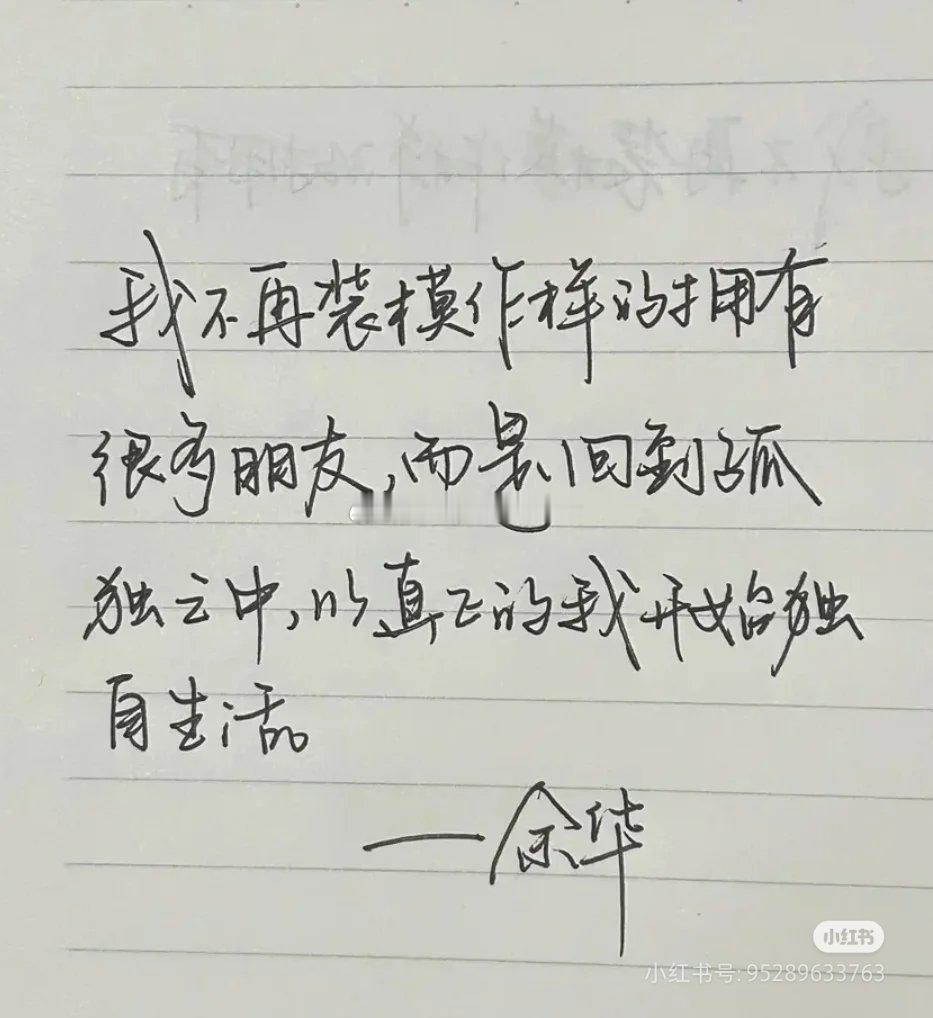 我不再装模作样的拥有
很多朋友,而是回到孤
独之中,以真正的我开始独
自生活
——余华
小红书
小红书号:95289633763